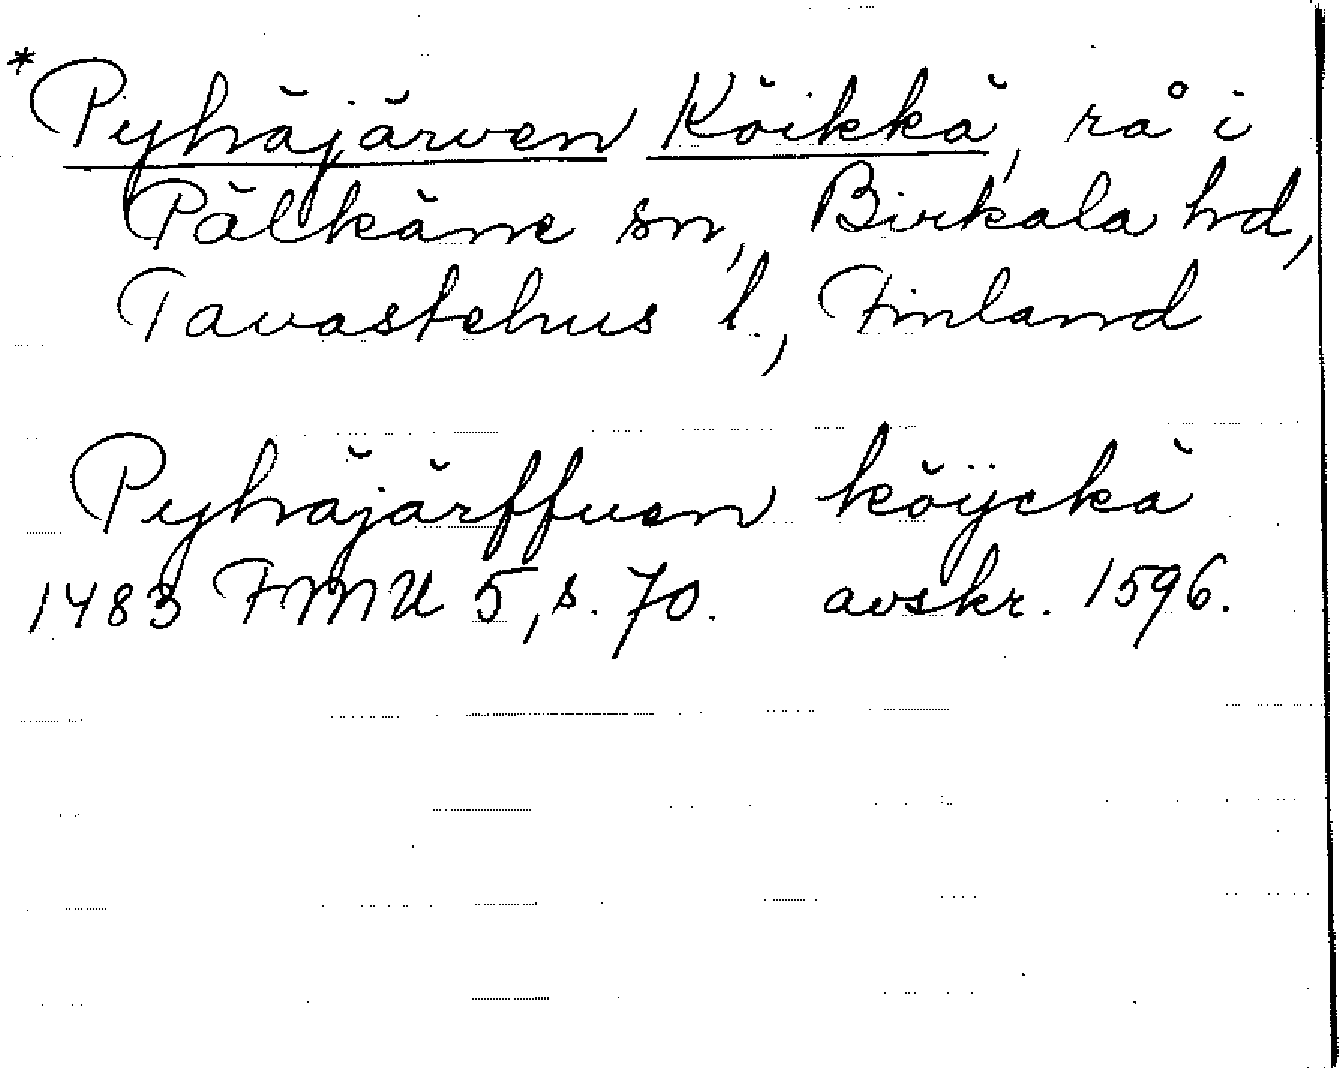 *Pyhäjärven Köikkä, rå i
Pälkäne sn, Birkala hd,
Tavastehus l., Finland
Pyhäjärffuen köÿckä
1483 FMU 5, s. 70. avskr. 1596.